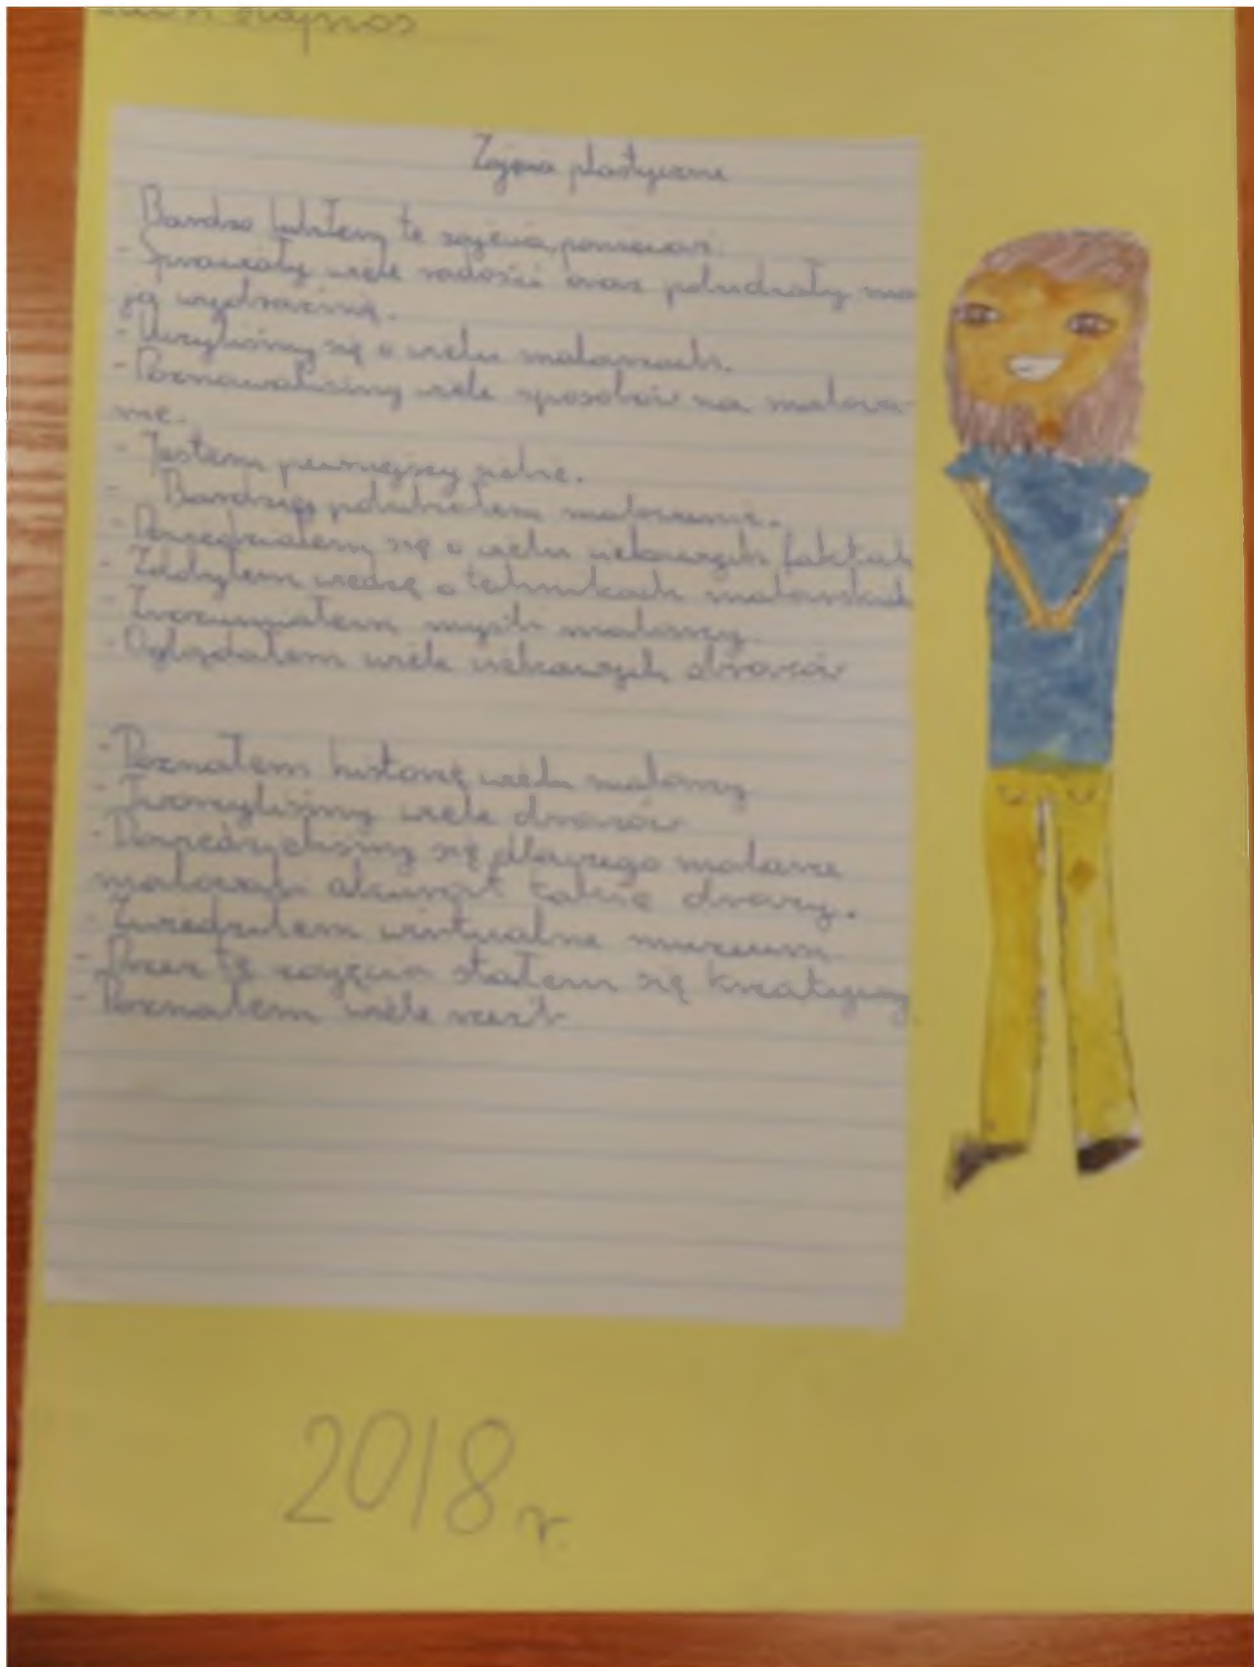 Zajęcia plastyczne
Bardzo lubiłem te zajęcia, ponieważ:
- Sprawiały wiele radości oraz pobudzały mo
ją wyobraźnię.
- Uczyliśmy się o wielu malarzach.
- Poznawaliśmy wiele sposobów na malowa-
nie.
- Jestem pewniejszy siebie.
- Bardziej polubiłem malowanie.
- Dowiedziałem się o wielu ciekawych faktach
- Zdobyłem wiedzę o tehnikach malarskich
- Zrozumiałem myśli malarzy
- Oglądałem wiele ciekawych obrazów
- Poznałem historię wielu malarzy
- Tworzyliśmy wiele obrazów
- się dlaczego malarze
malowali akurat takie obrazy.
- Zwiedziłem wirtualne muzeum
- Przez te zajęcia stałem się kreatywny
- Poznałem wiele
2018 r.